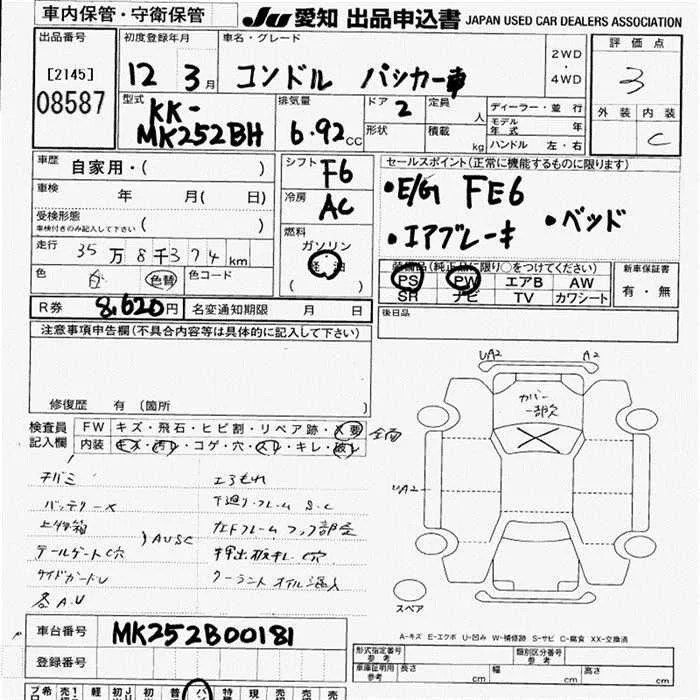 車内保管・守衛保管
JU 愛知 出品申込書 JAPAN USED CAR DEALERS ASSOCIATION
出品番号
[2145]
08587
初度登録年月
12 3月
車名・グレード
コンドル パッカー車
2WD
・
4WD
評価点
3
外装 内装
C
型式
KK-
MK252BH
排気量
6.92cc
ドア 2
形状
定員 人
積載 kg
ディーラー・並行
モデル年式 年
ハンドル 左・右
車歴 自家用・( )
車検 年 月( 日)
受検形態
車検付きのみ記入して下さい ( )
走行 35万8千374km
色 白 色替 色コード
シフト F6
冷房 AC
燃料
ガソリン
軽油
( )
セールスポイント(正常に機能するものに限ります)
・E/G FE6
・エアブレーキ ・ベッド
装備品(純正品に限り○をつけてください)
PS PW エアB AW
SR ナビ TV カワシート
新車保証書
有・無
R券 8,620円 名変通知期限 月 日
後日品
注意事項申告欄(不具合内容等は具体的に記入して下さい)
修復歴 有(箇所
検査員
記入欄
FW キズ・飛石・ヒビ割・リペア跡・X要 全面
内装 キズ・汚レ・コゲ・穴・スレ・キレ・破レ
バッテリーX
上物箱
AUSC
テールゲートC穴
サイドガードU
各A.U
下廻り・フレーム S.C
押出板キレC穴
UA2
A2
カバー
一部欠
UA2
スペア
A-キズ E-エクボ U-凹み W-補修跡 S-サビ C-腐食 XX-交換済
車台番号 MK252B00181
登録番号
型式指定番号
参考
類別区分番号
参考
車庫証明用
参考
長さ cm 幅 cm 高さ cm